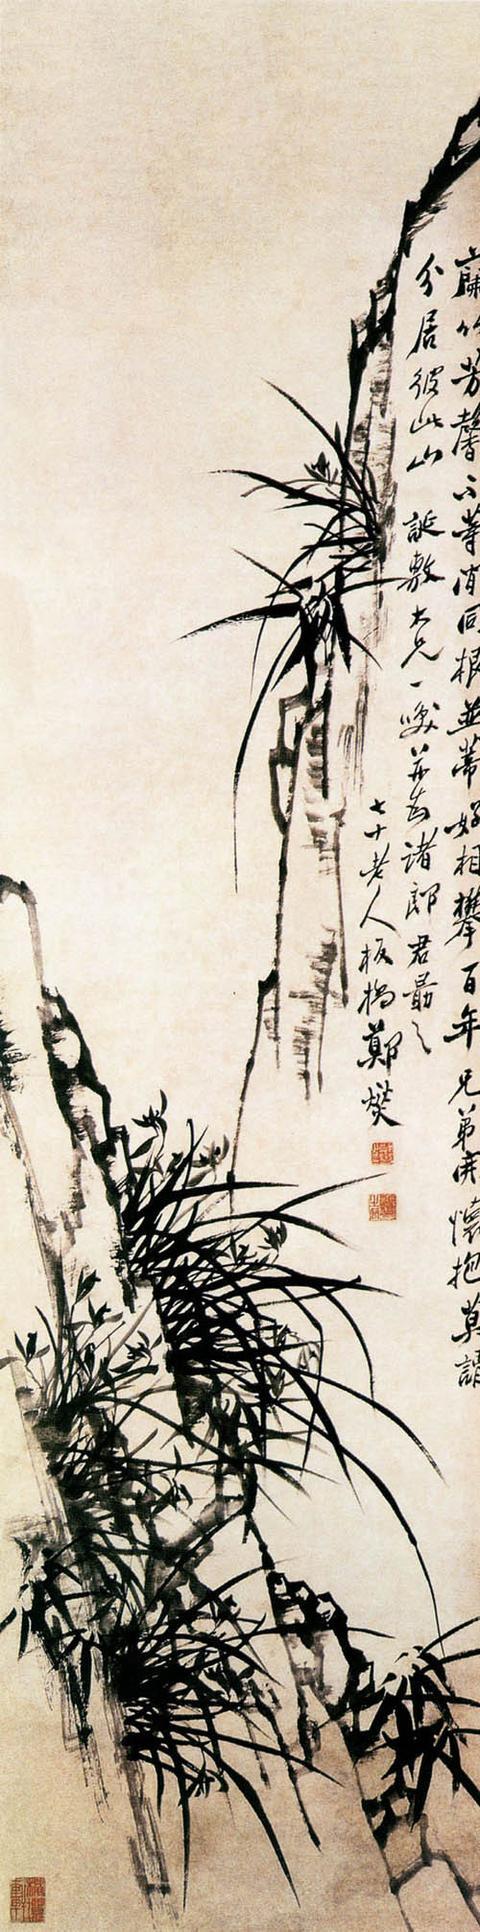 蘭竹芳馨不等閒同根並蒂好相攀百年兄弟開懷抱莫謂
分居彼此山 誕敷大兄一笑并示諸郎君勗之
七十老人板橋鄭燮